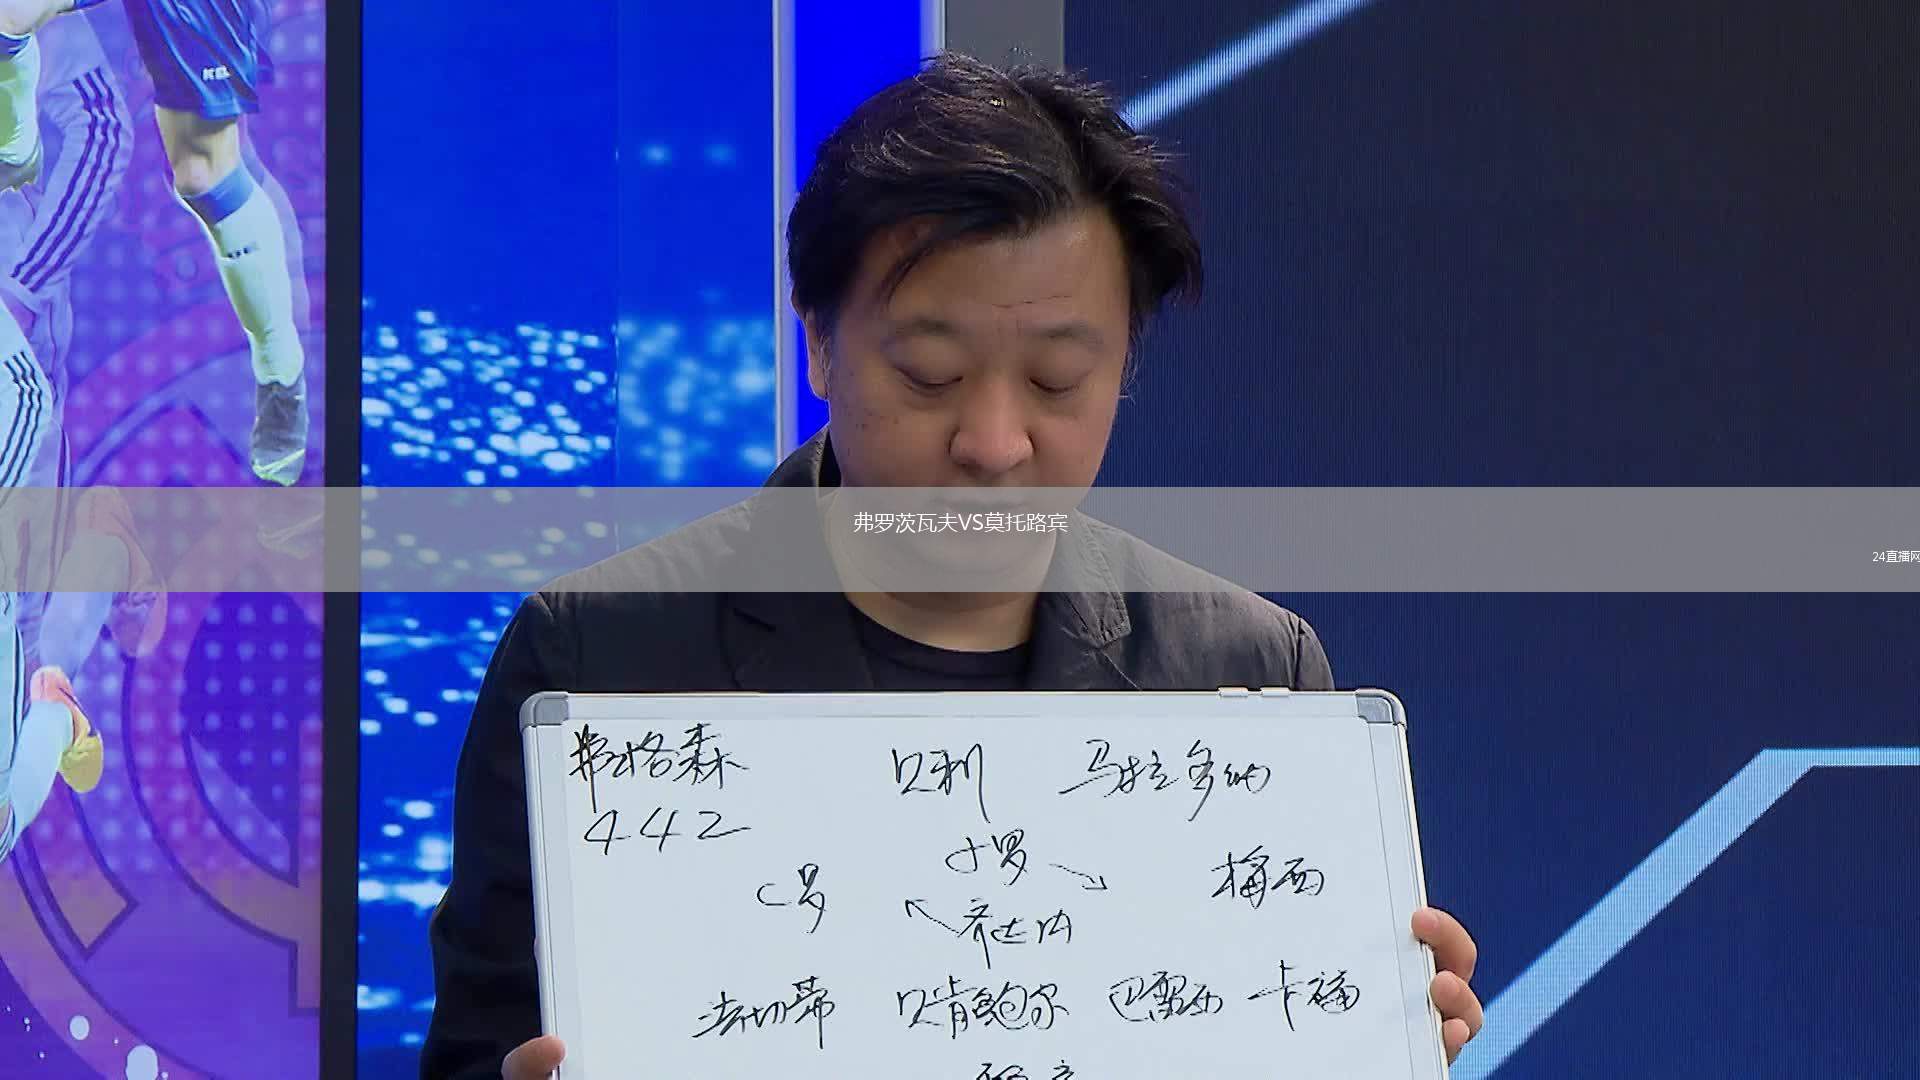 弗罗茨瓦夫VS莫托路宾
24直播网
弗格森 贝利 马拉多纳
442
小罗
C罗 梅西
齐达内
法切蒂 贝肯鲍尔 巴雷西 卡福